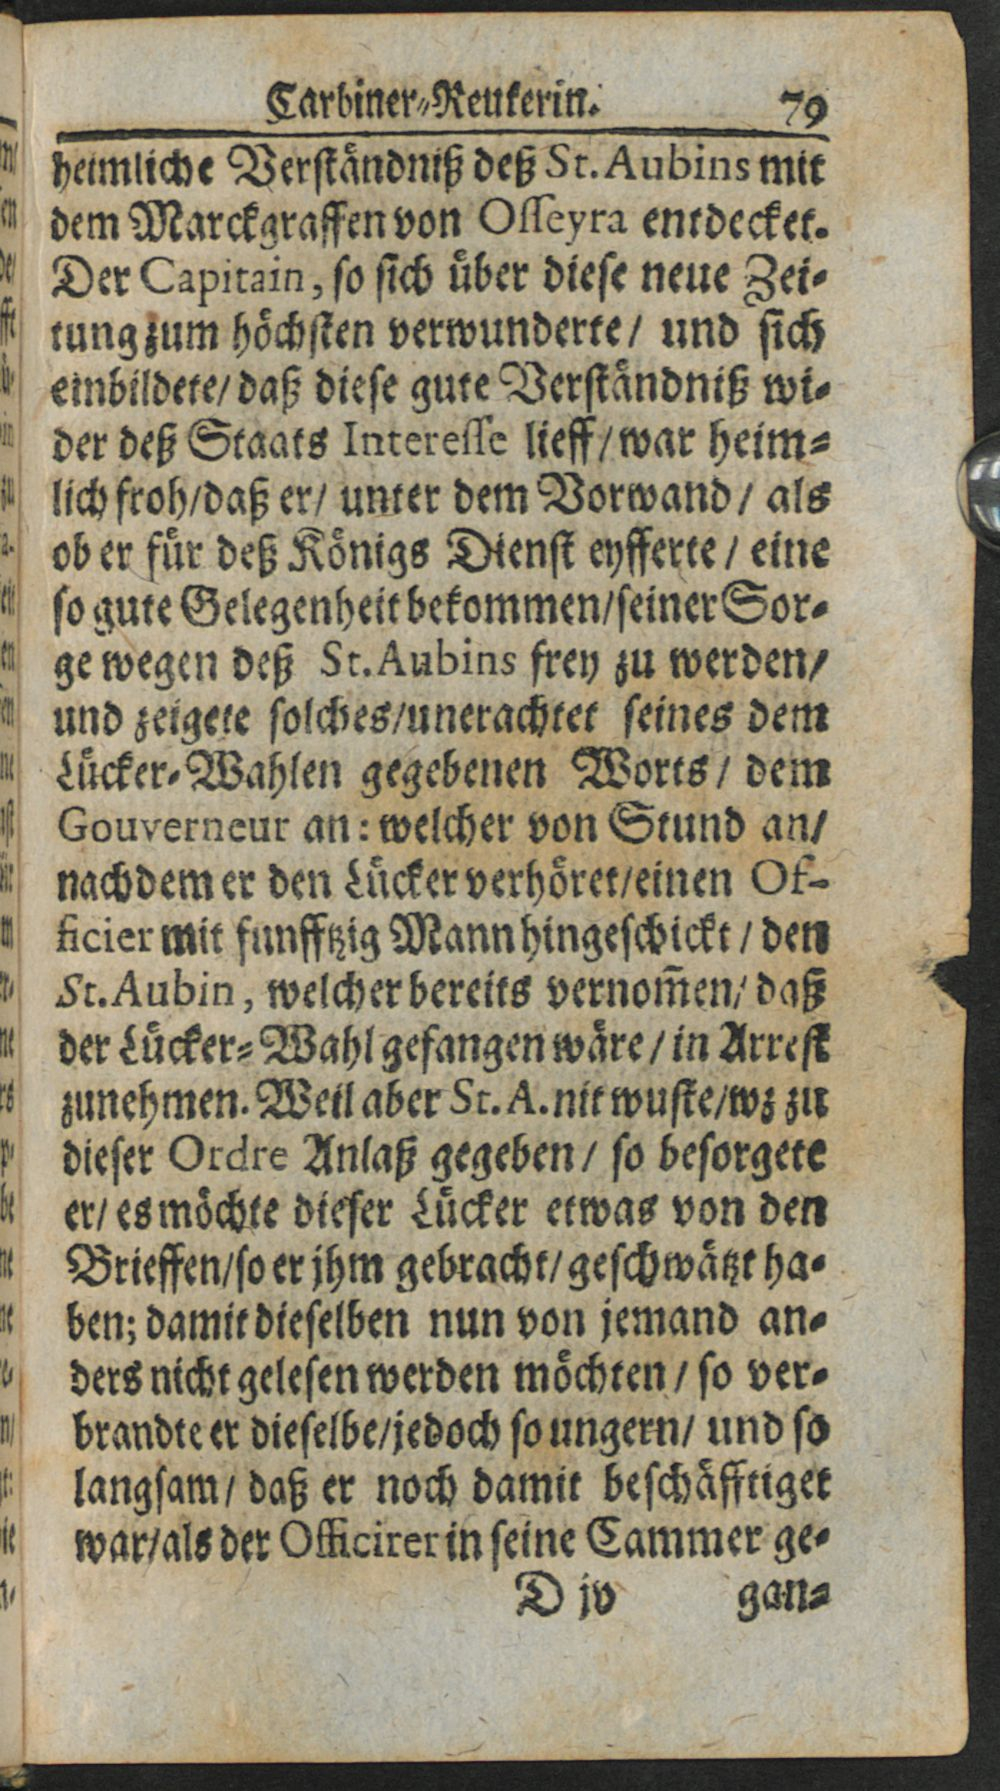 Carbiner-Reuterin. 79
heimliche Verständniß deß St. Aubins mit
dem Marckgraffen von Osseyra entdecket.
Der Capitain, so sich über diese neue Zei-
tung zum höchsten verwunderte / und sich
einbildete / daß diese gute Verständniß wi-
der deß Staats Interesse lieff / war heim-
lich froh / daß er / unter dem Vorwand / als
ob er für deß Königs Dienst eyfferte / eine
so gute Gelegenheit bekommen / seiner Sor-
ge wegen deß St. Aubins frey zu werden /
und zeigete solches / unerachtet seines dem
Lücker-Wahlen gegebenen Worts / dem
Gouverneur an: welcher von Stund an /
nachdem er den Lücker verhöret / einen Of-
ficier mit funfftzig Mann hingeschickt / den
St. Aubin, welcher bereits vernom̃en / daß
der Lücker-Wahl gefangen wäre / in Arrest
zunehmen. Weil aber St. A. nit wuste / wz zu
dieser Ordre Anlaß gegeben / so besorgete
er / es möchte dieser Lücker etwas von den
Brieffen / so er jhm gebracht / geschwätzt ha-
ben; damit dieselben nun von jemand an-
ders nicht gelesen werden möchten / so ver-
brandte er dieselbe / jedoch so ungern / und so
langsam / daß er noch damit beschäfftiget
war / als der Officirer in seine Cammer ge-
D jv gan-